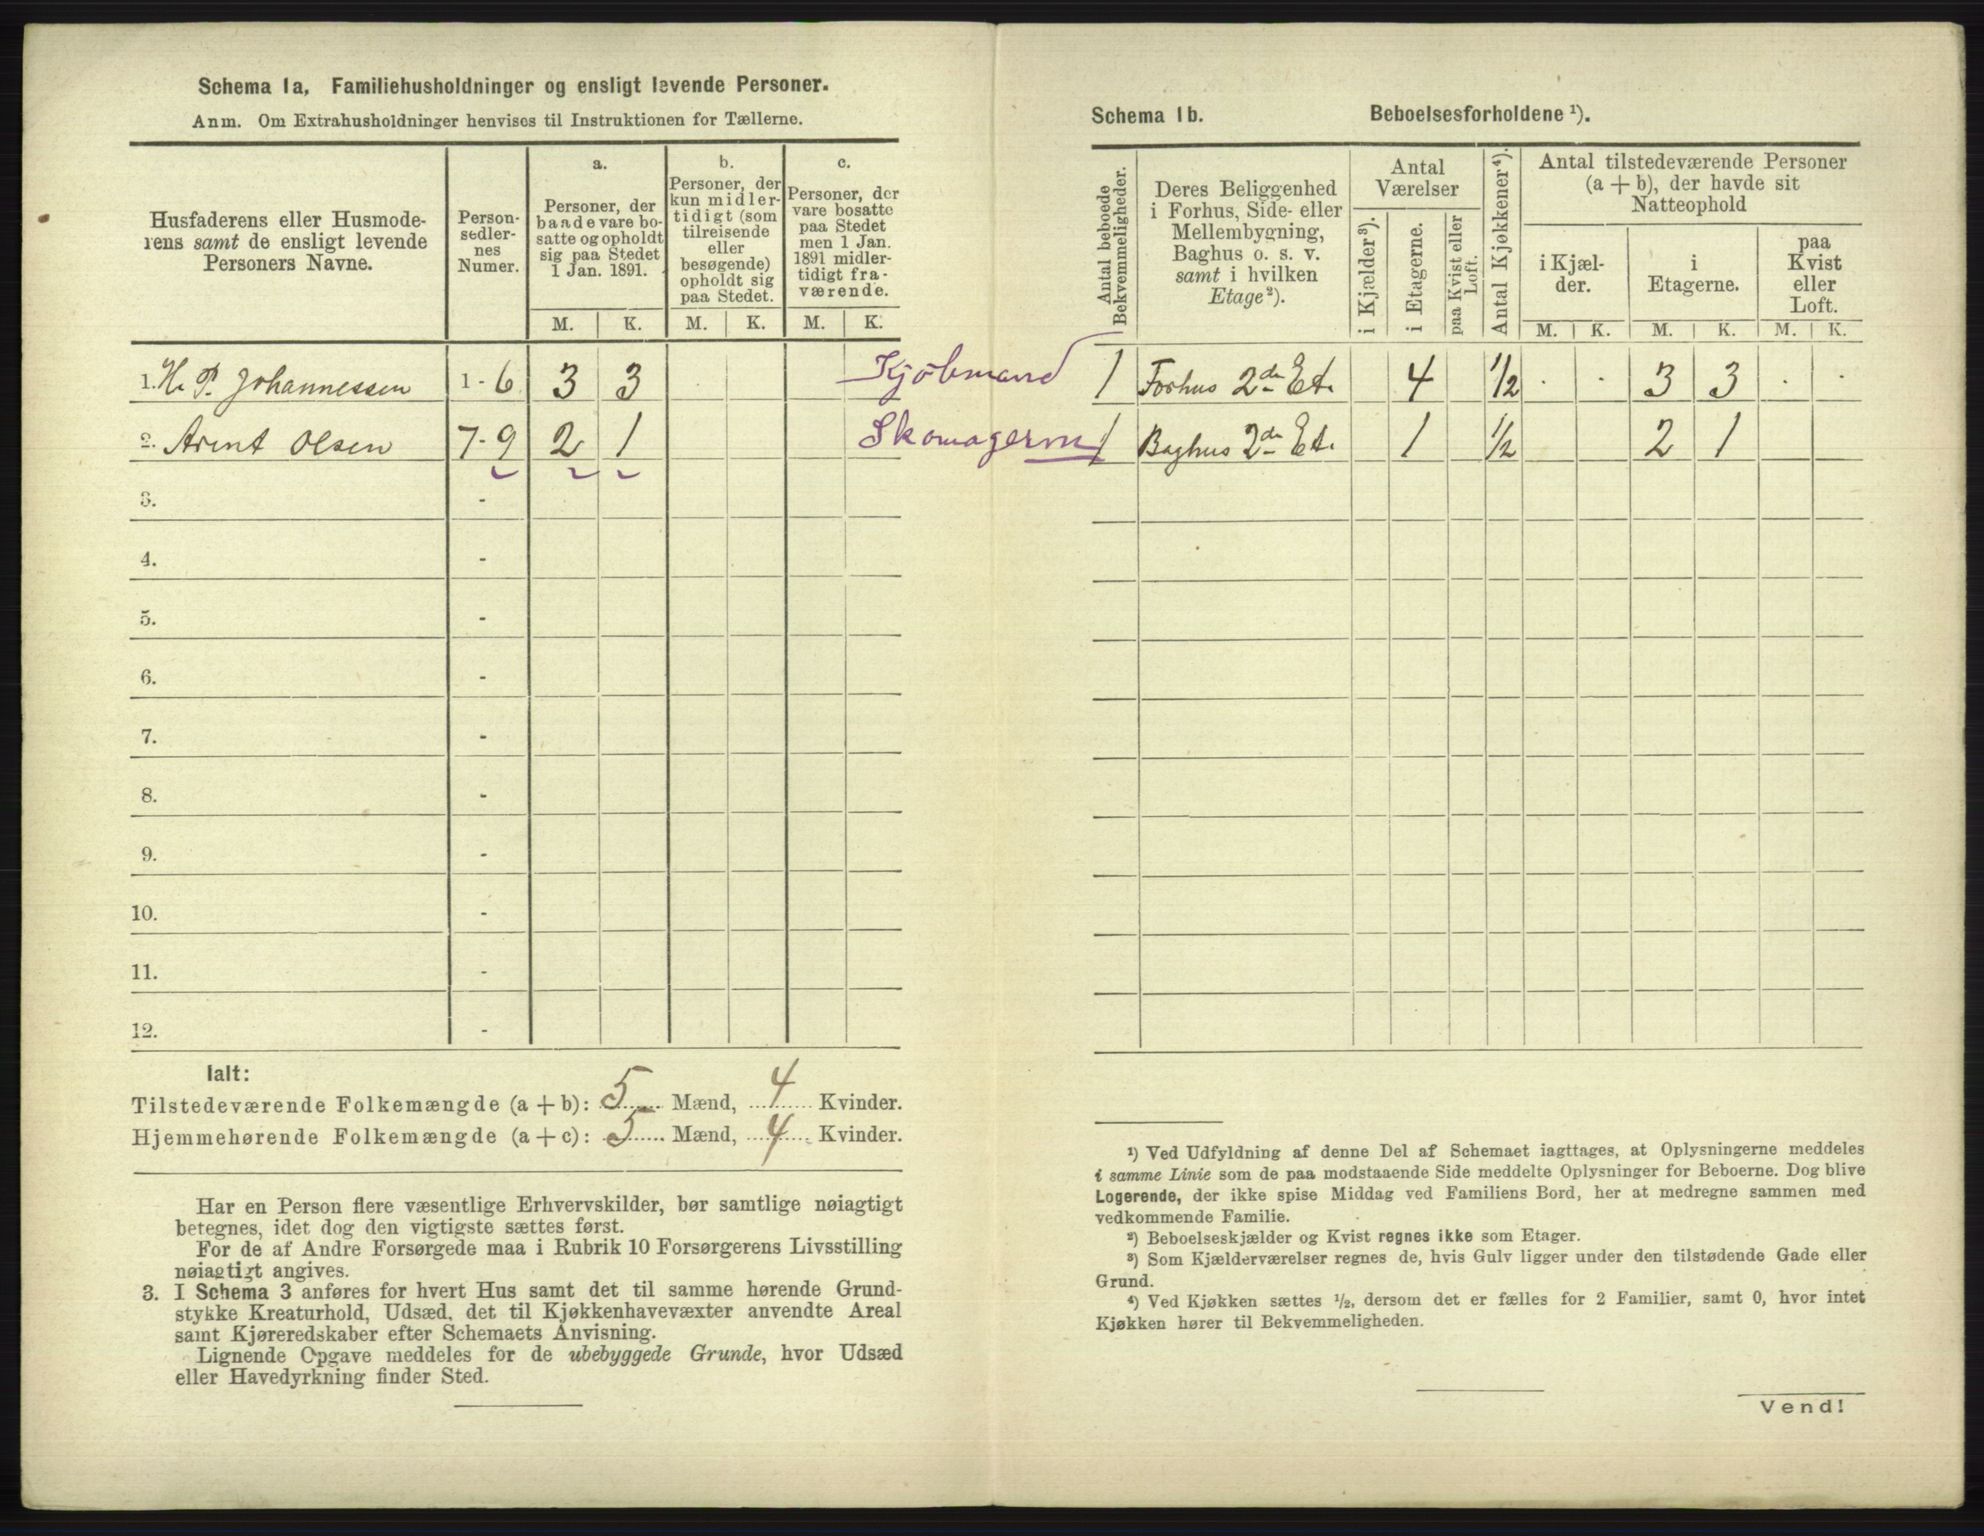 Schema 1a, Familiehusholdninger og ensligt levende Personer.
Anm. Om Extrahusholdninger henvises til Instruktionen for Tællerne.
Husfaderens eller Husmode-
rens samt de ensligt levende
Personers Navne.
Person-
sedler-
nes
Numer.
a.
Personer, der
baade vare bo-
satte og opholdt
sig paa Stedet
1 Jan. 1891.
b.
Personer, der
kun midler-
tidigt (som
tilreisende
eller
besøgende)
opholdt sig
paa Stedet.
c.
Personer, der
vare bosatte
paa Stedet
men 1 Jan.
1891 midler-
tidigt fra-
værende.
M. K. M. K. M. K.
1. H. P. Johannessen 1 - 6 3 3 Kjöbmand
2. Arent Olsen 7 - 9 2 1 Skomagerm
3. -
4. -
5. -
6. -
7. -
8. -
9. -
10. -
11. -
12. -
Ialt:
Tilstedeværende Folkemængde (a + b): 5 Mænd, 4 Kvinder.
Hjemmehørende Folkemængde (a + c): 5 Mænd, 4 Kvinder.
Har en Person flere væsentlige Erhvervskilder, bør samtlige nøiagtigt
betegnes, idet dog den vigtigste sættes først.
For de af Andre Forsørgede maa i Rubrik 10 Forsørgerens Livsstilling
nøiagtigt angives.
3. I Schema 3 anføres for hvert Hus samt det til samme hørende Grund-
stykke Kreaturhold, Udsæd, det til Kjøkkenhavevæxter anvendte Areal
samt Kjøreredskaber efter Schemaets Anvisning.
Lignende Opgave meddeles for de ubebyggede Grunde, hvor Udsæd
eller Havedyrkning finder Sted.
Schema 1b. Beboelsesforholdene ¹).
Antal beboede
Bekvemmeligheder.
Deres Beliggenhed
i Forhus, Side- eller
Mellembygning,
Baghus o. s. v.
samt i hvilken
Etage ²).
Antal
Værelser
i Kjælder ³).
i Etagerne.
paa Kvist eller
Loft.
Antal Kjøkkener ⁴).
Antal tilstedeværende Personer
(a + b), der havde sit
Natteophold
i Kjæl-
der.
i
Etagerne.
paa
Kvist
eller
Loft.
M. K. M. K. M. K.
1 Forhus 2de Et. 4 1/2 . . 3 3 . .
1 Baghus 2de Et. 1 1/2 2 1
¹) Ved Udfyldning af denne Del af Schemaet iagttages, at Oplysningerne meddeles
i samme Linie som de paa modstaaende Side meddelte Oplysninger for Beboerne. Dog blive
Logerende, der ikke spise Middag ved Familiens Bord, her at medregne sammen med
vedkommende Familie.
²) Beboelseskjælder og Kvist regnes ikke som Etager.
³) Som Kjælderværelser regnes de, hvis Gulv ligger under den tilstødende Gade eller
Grund.
⁴) Ved Kjøkken sættes 1/2, dersom det er fælles for 2 Familier, samt 0, hvor intet
Kjøkken hører til Bekvemmeligheden.
Vend!